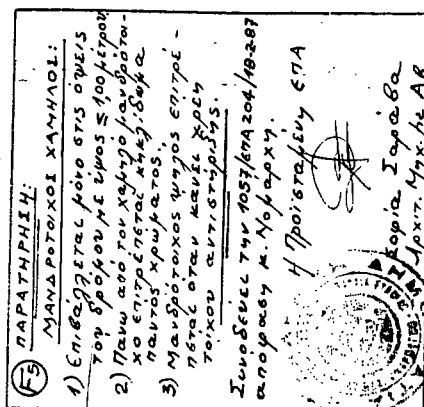 F5 ΠΑΡΑΤΗΡΗΣΗ:
ΜΑΝΔΡΟΤΟΙΧΟΣ ΧΑΜΗΛΟΣ:
1) Επιβάλλεται μόνο στις όψεις
του δρόμου με ύψος ≤ 1,00 μέτρου
2) Πάνω από τον χαμηλό μανδρότοι-
χο επιτρέπεται κιγκλίδωμα
παντός χρώματος.
3) Μανδρότοιχος ψηλός επιτρέ-
πεται όταν κάνει χρέη
τοίχου αντιστήριξης.
Συνοδεύει την 1057/ΕΠΑ 204/18-2-87
απόφαση κ. Νομάρχη.
Η Προϊσταμένη ΕΠΑ
Σοφία Σαράβα
Αρχιτ. Μηχ. με Α.Β.